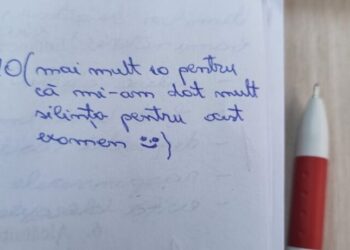 10 (mai mult 10 pentru
că mi-am dat mult
silință pentru acest
examen